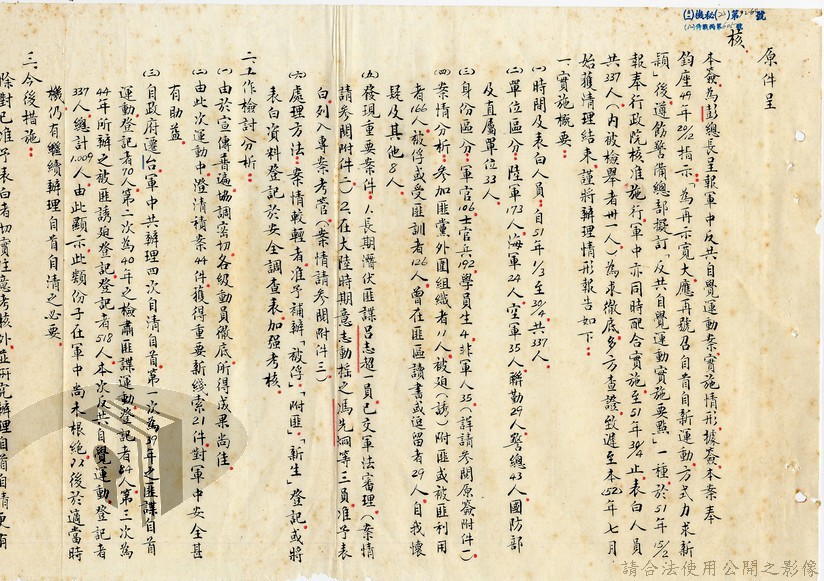 原件呈
核
本簽為彭總長呈報軍中反共自覺運動案實施情形據簽本案奉
鈞座49年20/12指示「為再示寬大應再號召自首自新運動方式力求新
穎」後遵飭警備總部擬訂「反共自覺運動實施要點」一種於51年15/2
報奉行政院核准施行軍中亦同時配合實施至51年30/4止表白人員
共337人(內被檢舉者卅一人)為求徹底多方查證致遲至本(52)年七月
始獲清理結束謹將辦理情形報告如下:
一實施概要:
(一)時間及表白人員:自51年1/3至30/4共337人
(二)單位區分:陸軍173人海軍24人空軍35人聯勤29人警總43人國防部
及直屬單位33人
(三)身份區分:軍官106士官兵192學員生4非軍人35(詳請參閱原簽附件一)
(四)案情分析:參加匪黨外圍組織者11人被迫(誘)附匪或被匪利用
者166人被俘或受匪訓者126人曾在匪區讀書或逗留者29人自我懷
疑及其他8人
(五)發現重要案件:1.長期潛伏匪諜呂志超一員已交軍法審理(案情
請參閱附件二)2.在大陸時期意志動搖之馮先炯等三員准予表
白列入專案考管(案情請參閱附件三)
(六)處理方法:案情較輕者准予補辦「被俘」「附匪」「新生」登記或將
表白資料登記於安全調查表加強考核
二、工作檢討分析:
(一)由於宣傳普遍協調密切各級動員徹底所得成果尚佳
(二)由此次運動中澄清積案44件獲得重要新綫索21件對軍中安全甚
有助益
(三)自政府遷台軍中共辦理四次自清自首第一次為39年之匪諜自首
運動登記者70人第二次為40年之檢肅匪諜運動登記者84人第三次為
44年所辦之被匪誘迫登記登記者518人本次反共自覺運動登記者
337人總計1.009人由此顯示此類份子在軍中尚未根絕今後於適當時
機仍有繼續辦理自首自清之必要
三、今後措施:
除對已准予表白者切實注意考核外並研究辦理自首自清更有
請合法使用公開之影像